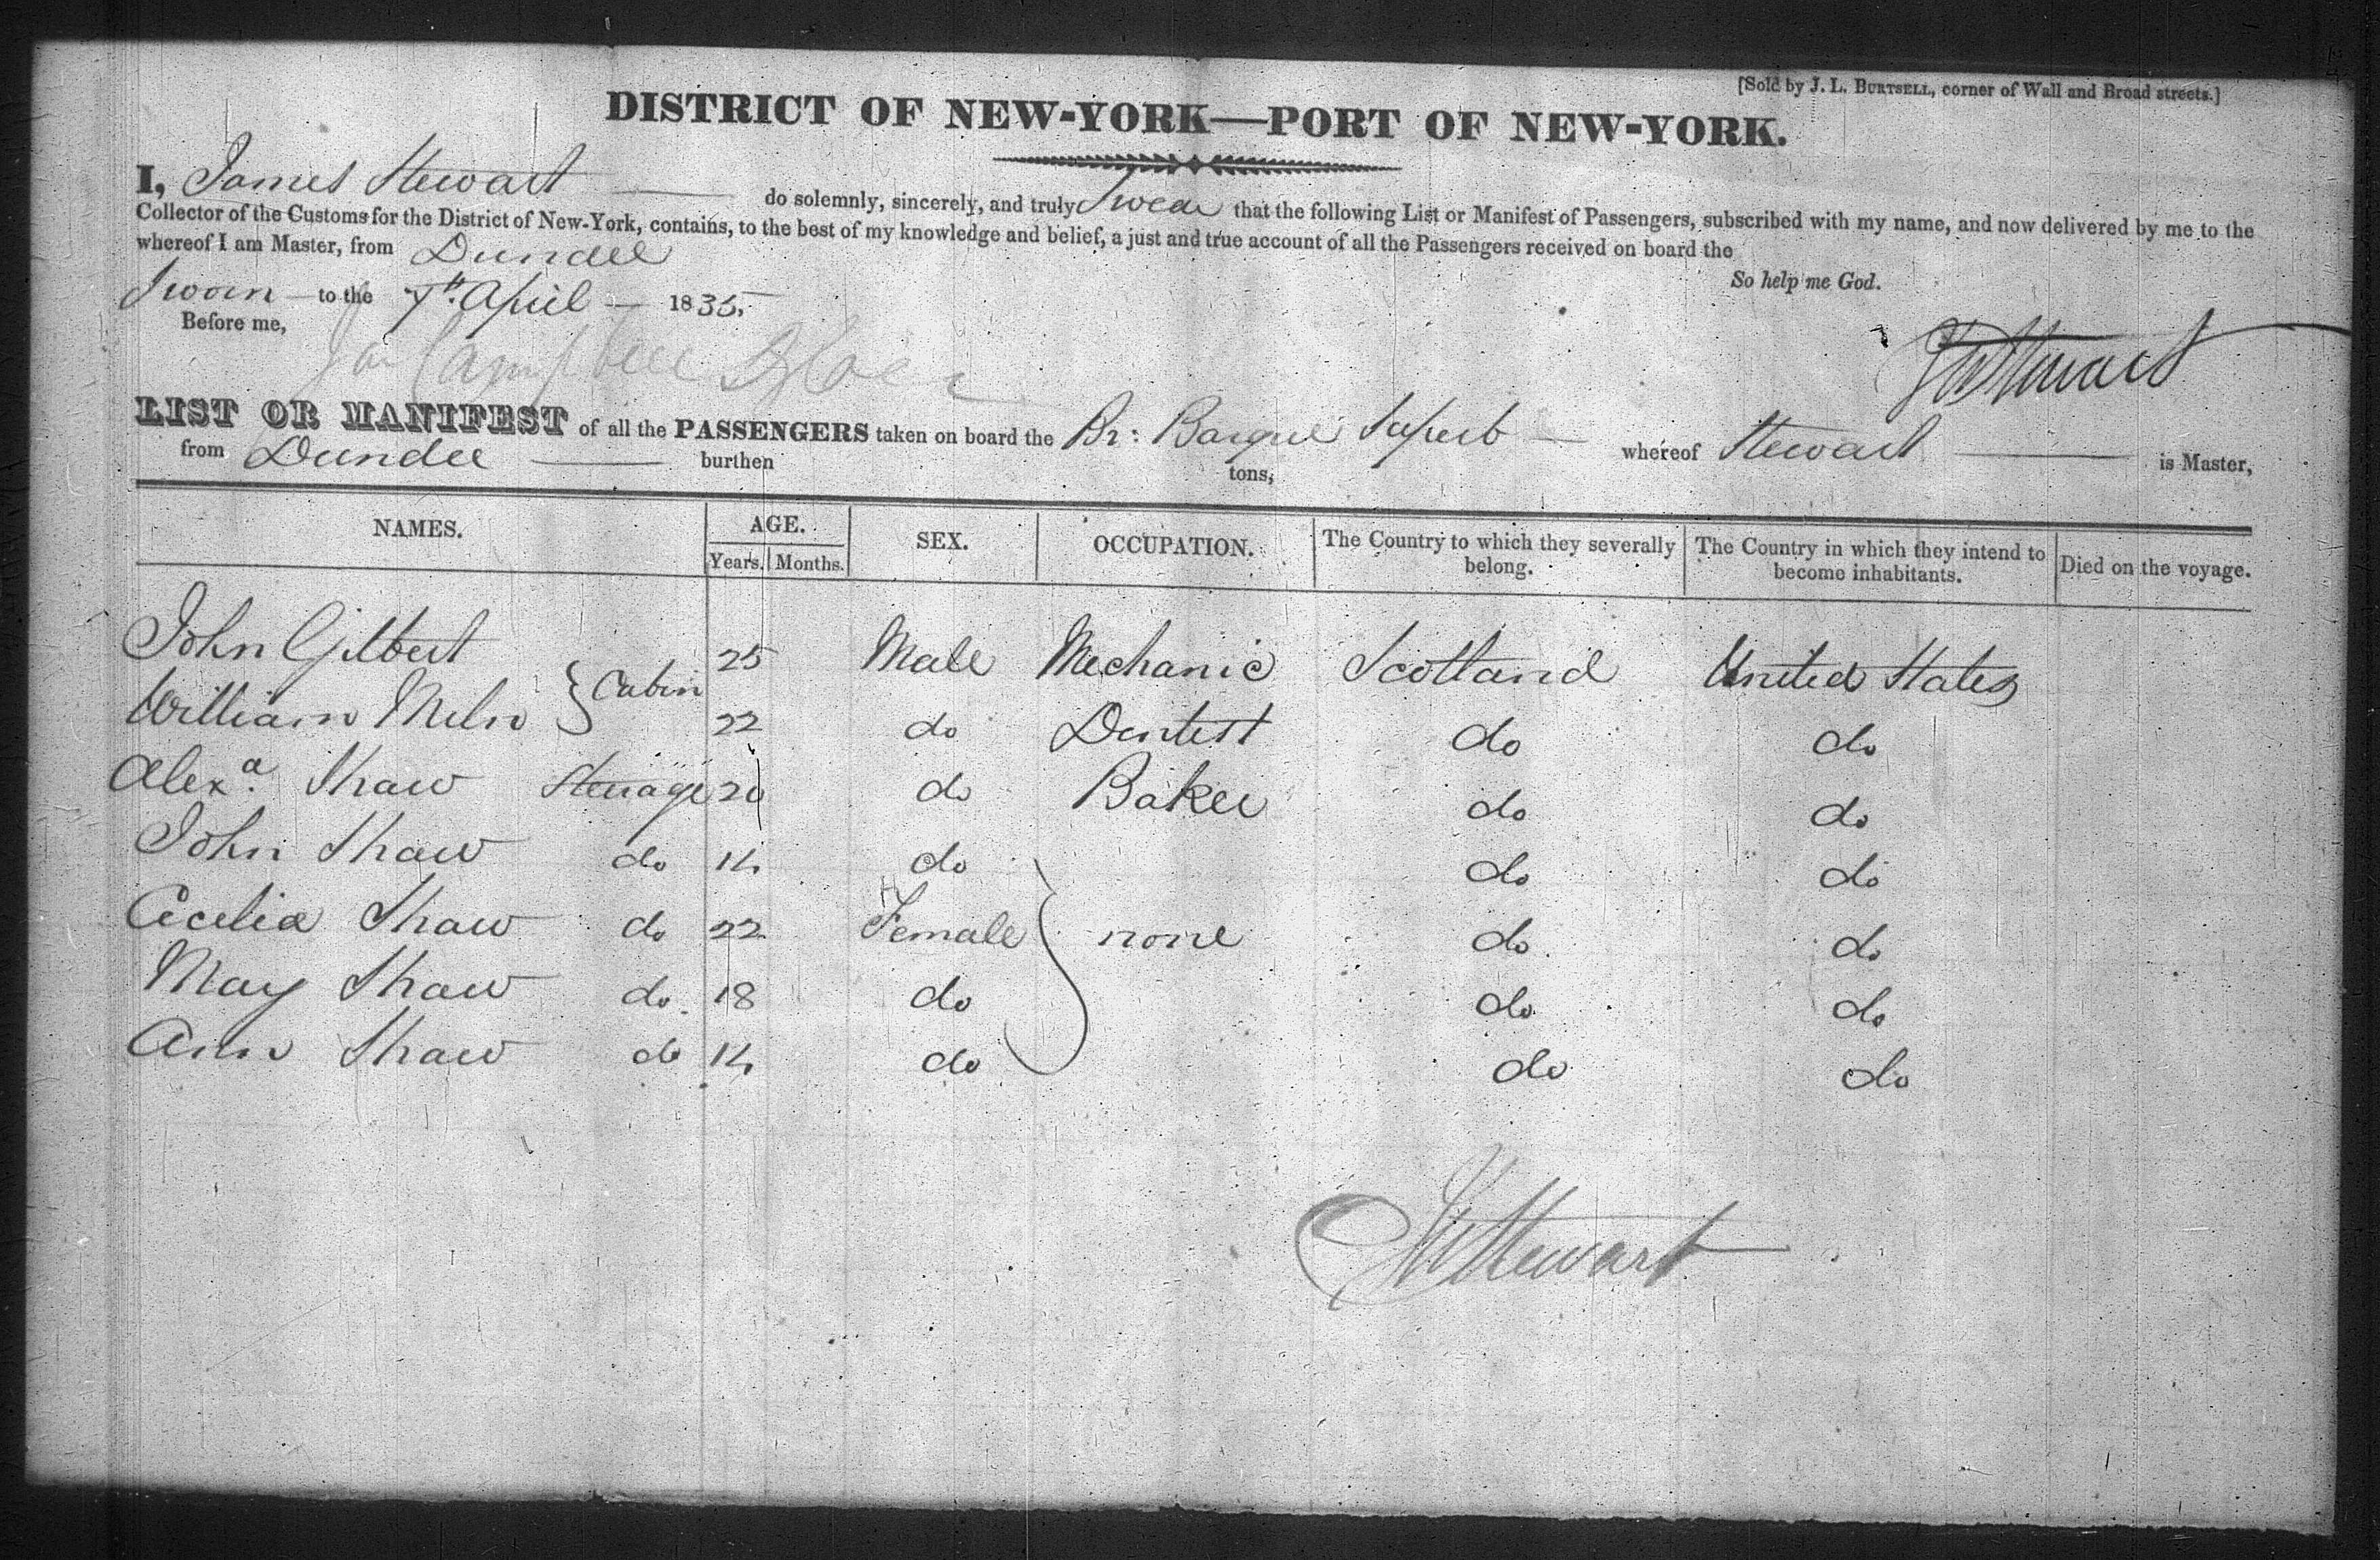 [Sold by J. L. BURTSELL, corner of Wall and Broad streets.]
DISTRICT OF NEW-YORK—PORT OF NEW-YORK.
I, James Stewart do solemnly, sincerely, and truly Swear that the following List or Manifest of Passengers, subscribed with my name, and now delivered by me to the
Collector of the Customs for the District of New-York, contains, to the best of my knowledge and belief, a just and true account of all the Passengers received on board the
whereof I am Master, from Dundee
So help me God.
Sworn to the 7th. April 1835,
Before me,
Campbell
Stewart
LIST OR MANIFEST of all the PASSENGERS taken on board the Br: Barque Superb whereof Stewart is Master,
from Dundee burthen tons,
NAMES. AGE. SEX. OCCUPATION. The Country to which they severally belong. The Country in which they intend to become inhabitants. Died on the voyage.
Years. Months.
John Gilbert } Cabin 25 Male Mechanic Scotland United States
William Miln 22 do Dentist do do
Alexa. Shaw Steerage 20 do Baker do do
John Shaw do 14 do do do
Cecelia Shaw do 22 Female } none do do
May Shaw do 18 do do do
Ann Shaw do 14 do do do
Stewart